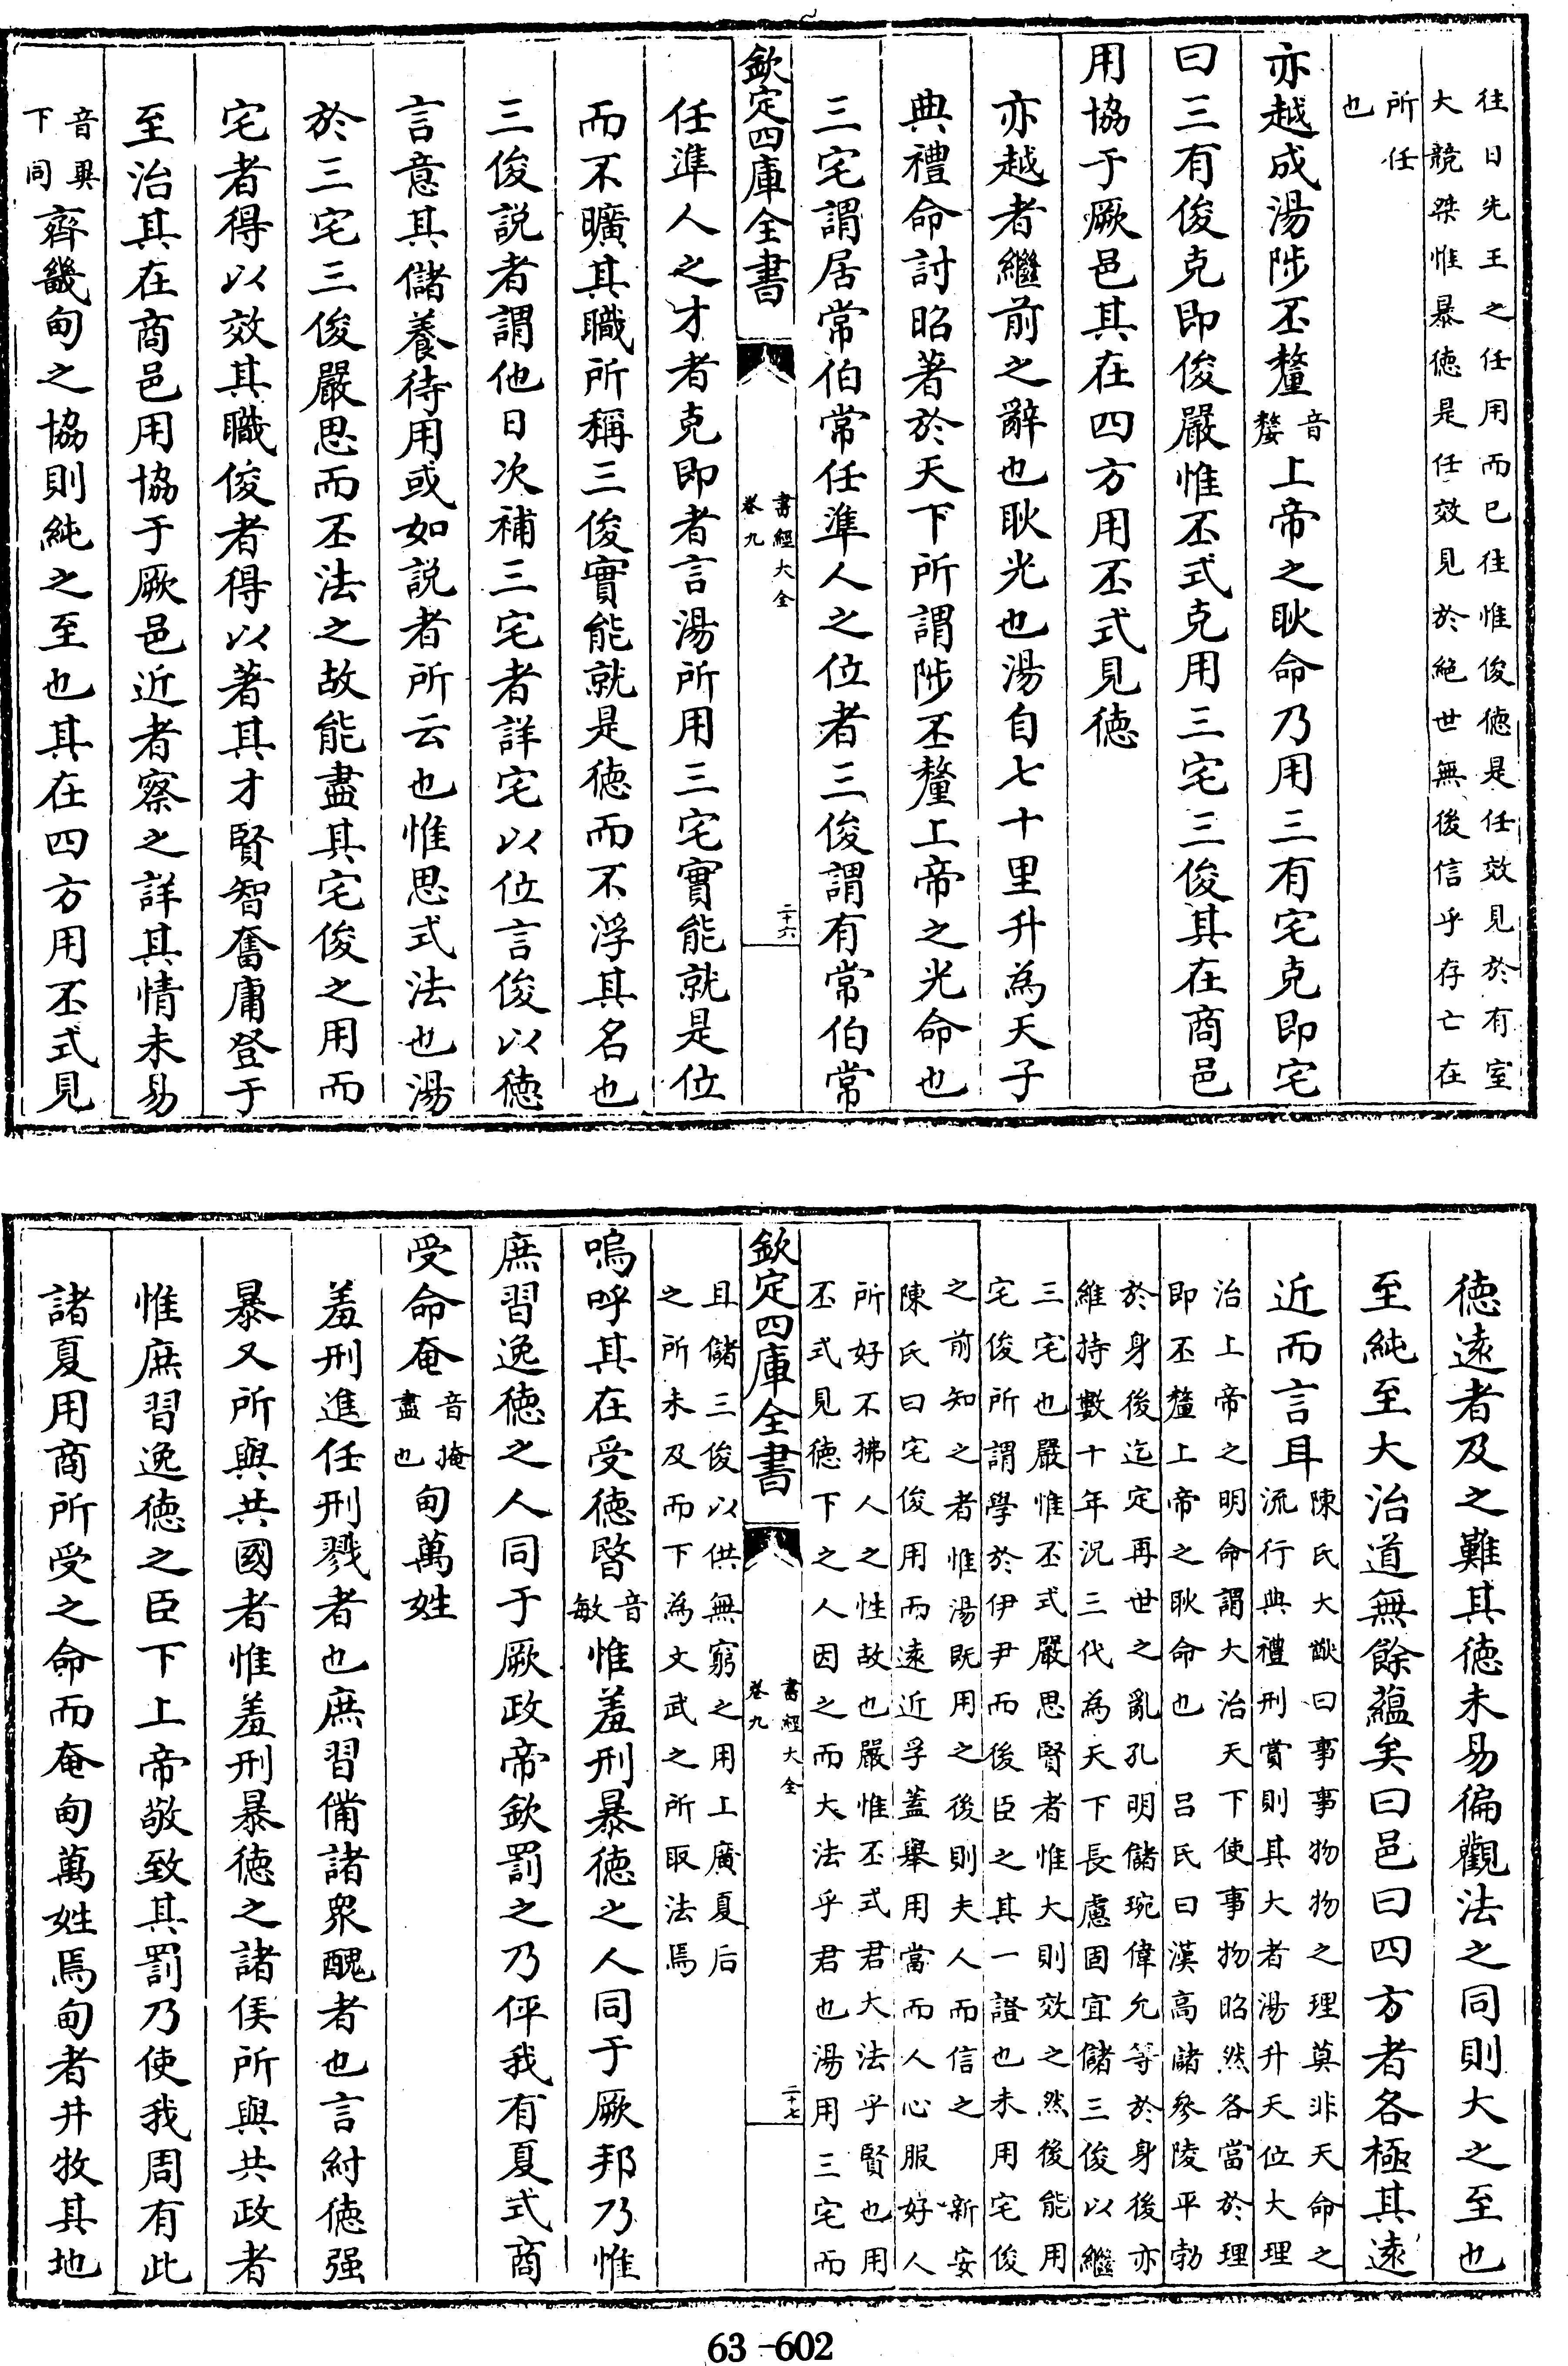 往日先王之任用而已往惟俊徳是任效見於有室
大競桀惟暴徳是任效見於絶世無後信乎存亡在
所任
也
亦越成湯陟丕釐音
釐上帝之耿命乃用三有宅克即宅
曰三有俊克即俊嚴惟丕式克用三宅三俊其在商邑
用協于厥邑其在四方用丕式見徳
亦越者繼前之辭也耿光也湯自七十里升為天子
典禮命討昭著於天下所謂陟丕釐上帝之光命也
三宅謂居常伯常任準人之位者三俊謂有常伯常
欽定四庫全書
書經大全
卷九
二十六
任準人之才者克即者言湯所用三宅實能就是位
而不曠其職所稱三俊實能就是徳而不浮其名也
三俊説者謂他日次補三宅者詳宅以位言俊以徳
言意其儲養待用或如説者所云也惟思式法也湯
於三宅三俊嚴思而丕法之故能盡其宅俊之用而
宅者得以效其職俊者得以著其才賢智奮庸登于
至治其在商邑用協于厥邑近者察之詳其情未易
音異
下同齊畿甸之協則純之至也其在四方用丕式見
徳遠者及之難其徳未易徧觀法之同則大之至也
至純至大治道無餘藴矣曰邑曰四方者各極其遠
近而言耳陳氏大猷曰事事物物之理莫非天命之
流行典禮刑賞則其大者湯升天位大理
治上帝之明命謂大治天下使事物昭然各當於理
即丕釐上帝之耿命也 吕氏曰漢高儲參陵平勃
於身後迄定再世之亂孔明儲琬偉允等於身後亦
維持數十年況三代為天下長慮固宜儲三俊以繼
三宅也嚴惟丕式嚴思賢者惟大則效之然後能用
宅俊所謂學於伊尹而後臣之其一證也未用宅俊
之前知之者惟湯既用之後則夫人而信之 新安
陳氏曰宅俊用而遠近孚蓋舉用當而人心服好人
所好不拂人之性故也嚴惟丕式君大法乎賢也用
丕式見徳下之人因之而大法乎君也湯用三宅而
欽定四庫全書
書經大全
卷九
二十七
且儲三俊以供無窮之用上廣夏后
之所未及而下為文武之所取法焉
嗚呼其在受徳暋音
敏惟羞刑暴徳之人同于厥邦乃惟
庶習逸徳之人同于厥政帝欽罰之乃伻我有夏式商
受命奄音掩
盡也甸萬姓
羞刑進任刑戮者也庶習備諸衆醜者也言紂徳强
暴又所與共國者惟羞刑暴徳之諸侯所與共政者
惟庶習逸徳之臣下上帝敬致其罰乃使我周有此
諸夏用商所受之命而奄甸萬姓焉甸者井牧其地
63-602